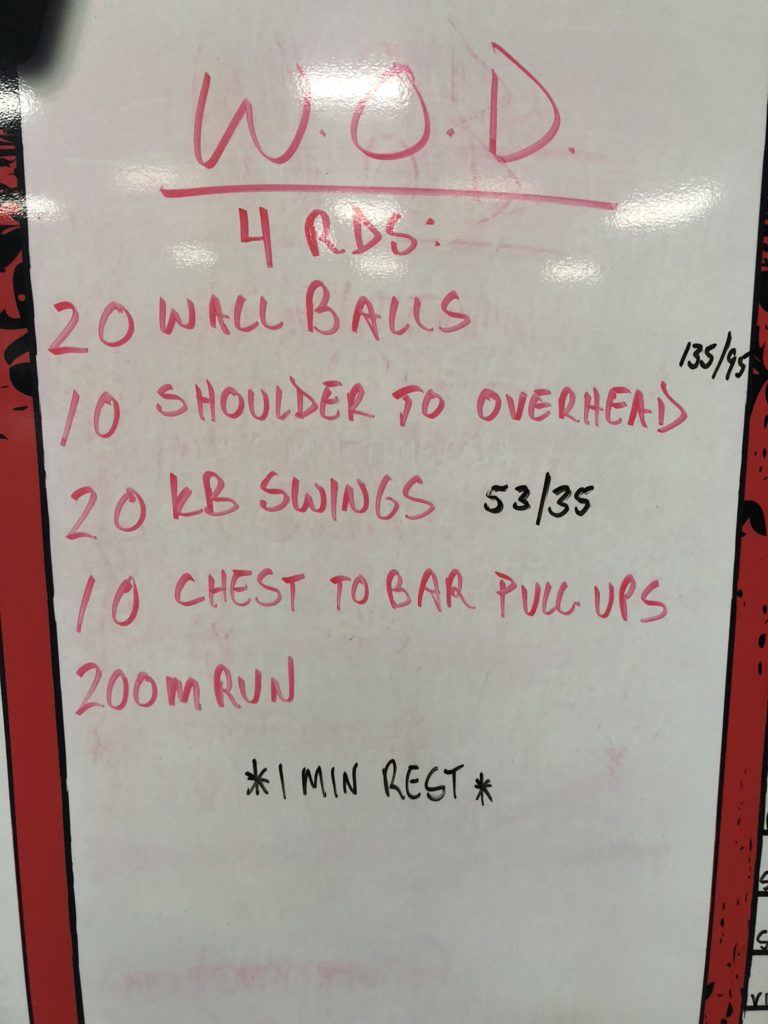 W.O.D.
4 RDS:
20 WALL BALLS
135/95
10 SHOULDER TO OVERHEAD
20 KB SWINGS 53/35
10 CHEST TO BAR PULL-UPS
200m RUN
*1 MIN REST*